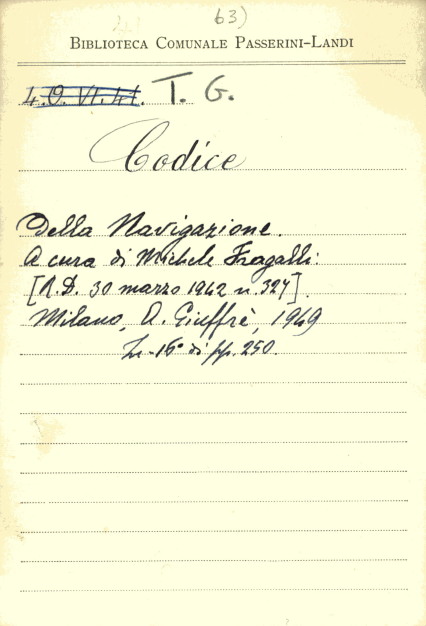 63)
BIBLIOTECA COMUNALE PASSERINI-LANDI
4.O.VI.41. T. G.
Codice
Della Navigazione.
A cura di Michele Fragalli.
[R.D. 30 marzo 1942 n. 327].
Milano, A. Giuffrè, 1949
In-16° di pp. 250.